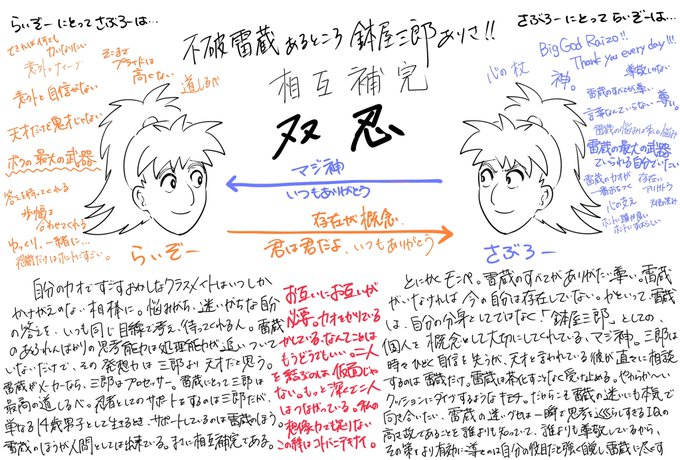 らいぞーにとって さぶろーは…
できれば何でも
かなりたい
意外とナイーブ
そこまで
プライドは
高くない
意外と自信がない
道しるべ
天才だけど鬼才じゃない
ボクの最大の武器
答えを待ってくれる
歩幅を
合わせてくれる
ゆっくり、一緒に…
不破雷蔵あるところ鉢屋三郎ありさ!!
相互補完
双忍
マジ神
いつもありがとう
存在が概念
君は君だよ、いつもありがとう
らいぞー
さぶろー
さぶろーにとって らいぞーは…
Big God Raizo!!
Thank you every day!!!
心の杖
神。
尊敬しかない
雷蔵のすべてが尊い
尊い。
言葉なんていらない
雷蔵の悩みは私の悩み
雷蔵の最大の武器
でいられる自分でいたい
雷蔵のカオが
一番おちつく
存在に
アリガトウ
心の支え
自分のカオですごすおかしなクラスメイトはいつしか
かけがえのない相棒に。悩みがち、迷いがちな自分
の答えを、いつも同じ目線で考え、待ってくれる人。雷蔵
のあふれんばかりの思考能力は処理能力が追いついて
いないだけで、その発想力は三郎より天才だと思う。
雷蔵がメーカーなら、三郎はプロセッサー。雷蔵にとって三郎は
最高の道しるべ。忍者としてのサポートをするのは三郎だが、
単なる14歳男子として生きるとき、サポートしているのは雷蔵のほう。
雷蔵のほうが人間としては出来ている。まさに相互補完である。
お互いにお互いが
必要。カオをかりている
かしているなんてことは
もうどうでもいい。二人
を結ぶのは仮面じゃ
ない。もっと深くで二人
はつながっている。私の
想像力でも足りない
この絆はコトバにできナイ。
とにかくモンペ。雷蔵のすべてがありがたい尊い。雷蔵
がいなければ今の自分は存在していない。かといって雷蔵
は、自分の分身としてではなく「鉢屋三郎」としての、
個人を概念として大切にしてくれている、マジ神。三郎は
時々ひどく自信を失うが、天才と言われている彼が直々に相談
するのは雷蔵だけ。雷蔵は茶化すことなく受け止める。やわらか〜い
クッションにダイブするようなキモチ。だからこそ雷蔵の迷いも本気で
向き合いたい、雷蔵の迷いグセは一瞬で思考を巡らしすぎるIQの
高さ故であることを誰よりも知ってて、誰よりも尊敬しているから、